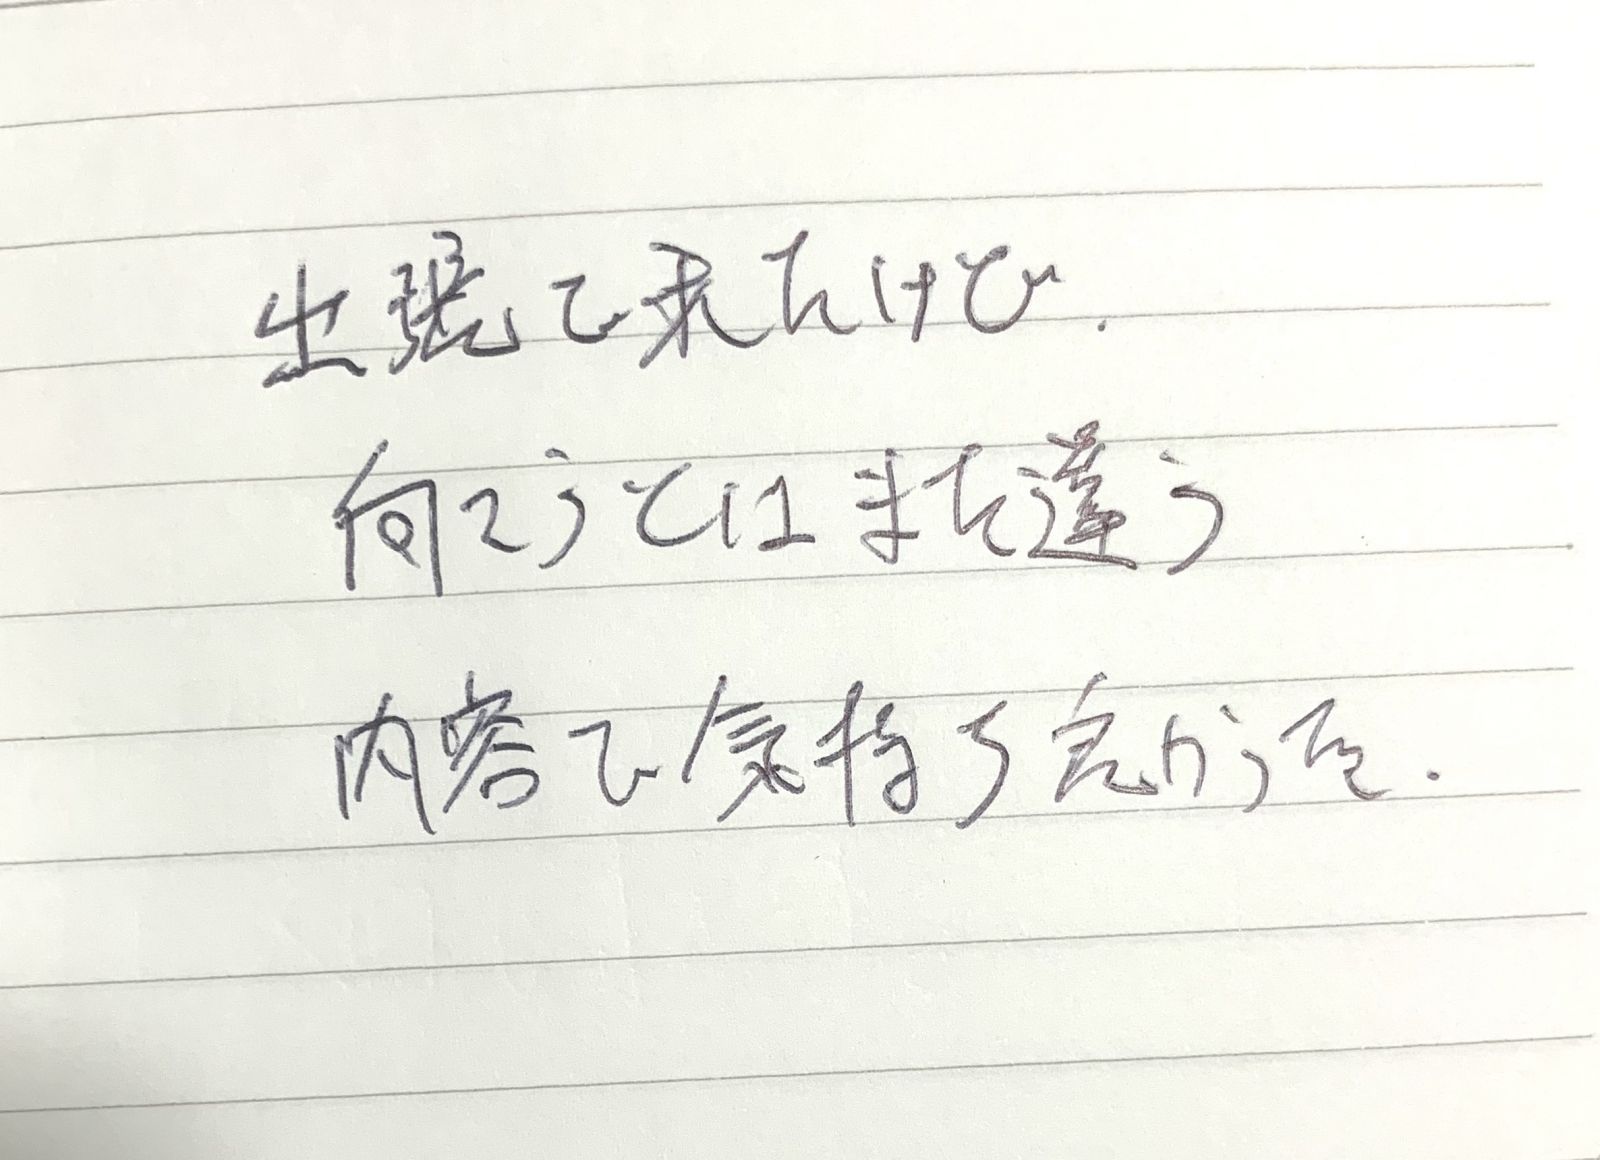 出張で来たけど.
向こうとはまた違う
内容で気持ち良かった.